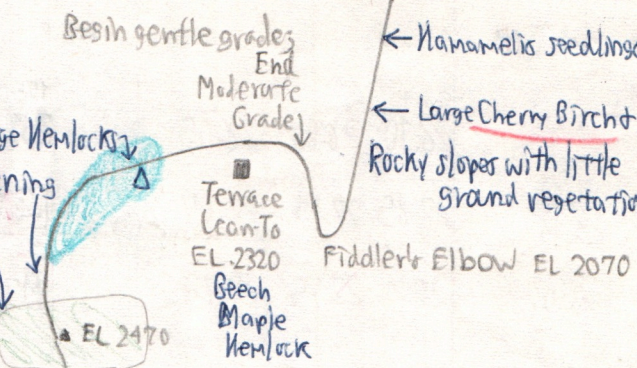 Begin gentle grade;
End
Moderate
Grade
← Hamamelis seedlings
← Large Cherry Birch+
Rocky slopes with little
ground vegetation
Hemlocks
Terrace
Lean-To
EL.2320
Beech
Maple
Hemlock
Fiddler's Elbow EL 2070
EL 2470